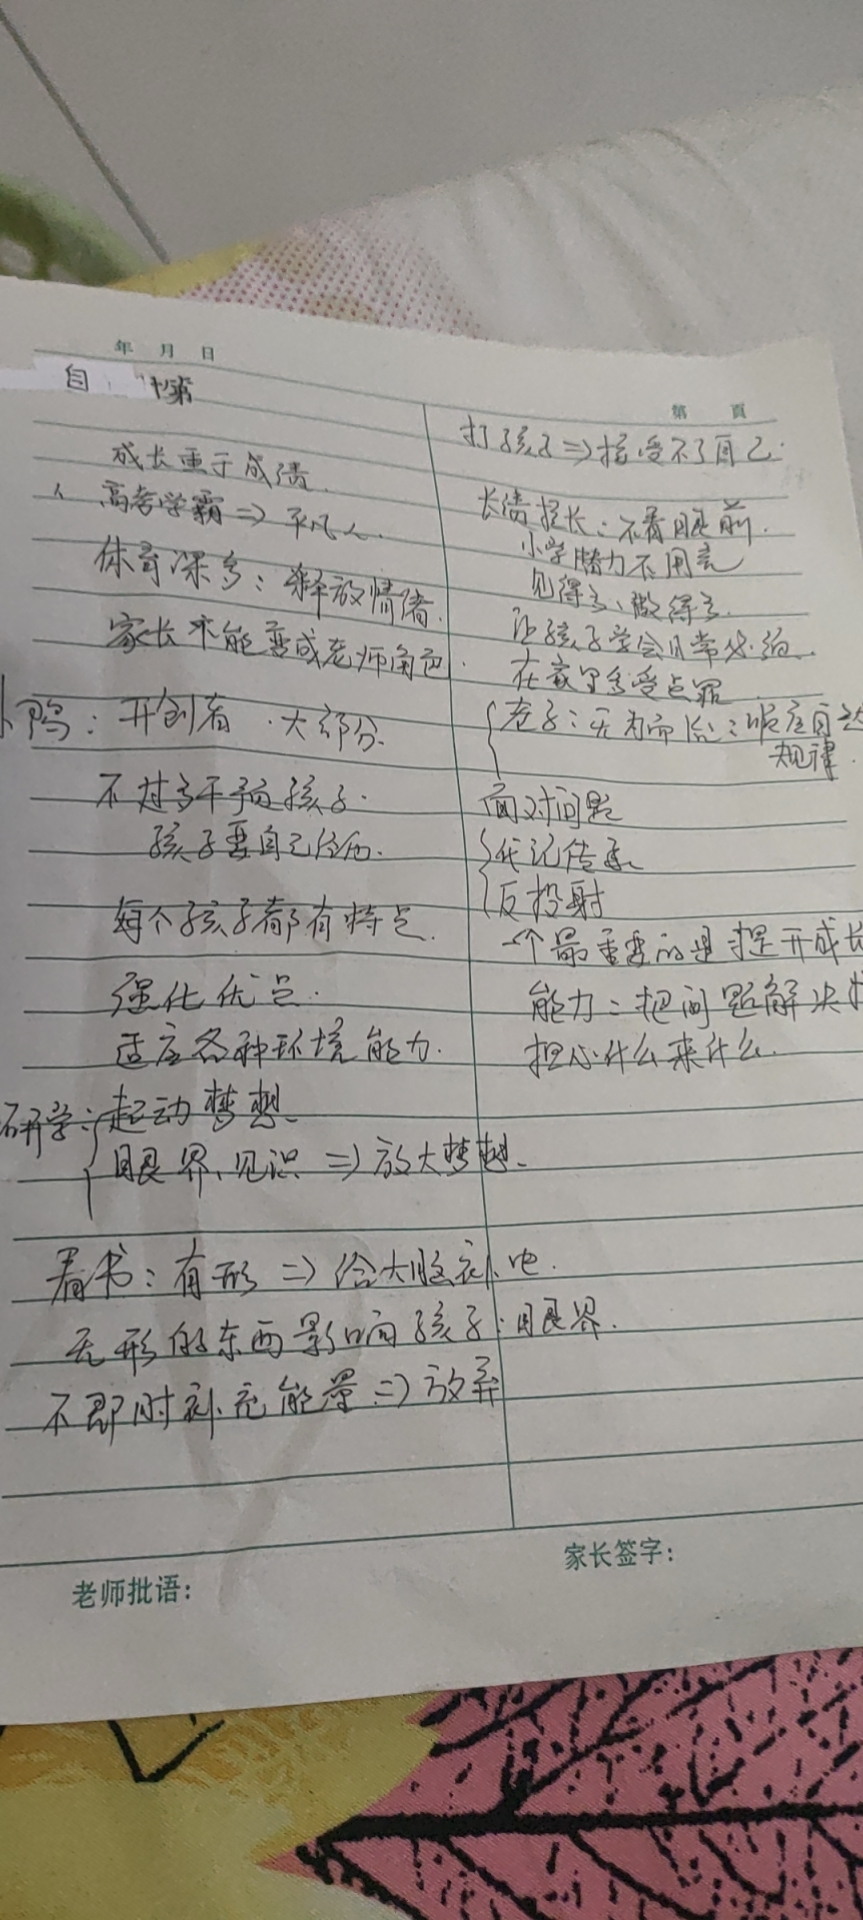 年 月 日
第 頁
自
成长重于成绩.
高考学霸 => 平凡人.
体育课多：释放情绪.
家长不能变成老师角色.
鸭：开创者.大部分.
不过多干预孩子.
孩子要自己经历.
每个孩子都有特点.
强化优点.
适应各种环境能力.
研学：起动梦想.
眼界、见识 => 放大梦想.
看书：有形 => 给大脑补电.
无形的东西影响孩子：眼界.
不即时补充能量 => 放弃
打孩子 => 接受不了自己.
：不看眼前.
小学潜力不用完
见得多、做得多.
让孩子学会日常
在家里多受点罪
老子：无为而治：顺应自
规律.
面对问题
代记传承
反投射
一个最重要的是 提升成长
能力：把问题解决
担心什么来什么.
老师批语：
家长签字：